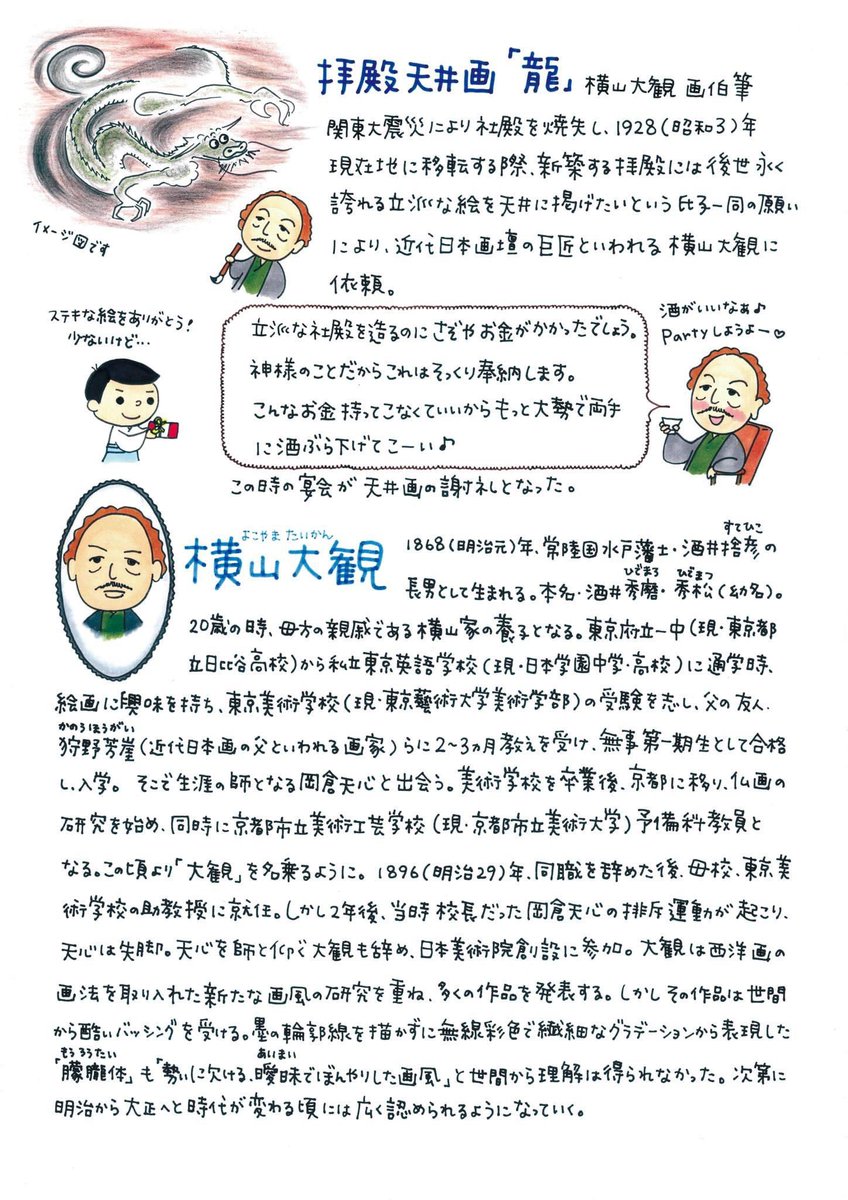 拝殿天井画「龍」 横山大観 画伯筆
関東大震災により社殿を焼失し、1928(昭和3)年
現在地に移転する際、新築する拝殿には後世永く
誇れる立派な絵を天井に掲げたいという氏子一同の願い
により、近代日本画壇の巨匠といわれる横山大観に
依頼。
イメージ図です
ステキな絵をありがとう!
少ないけど…
立派な社殿を造るのにさぞやお金がかかったでしょう。
神様のことだからこれはそっくり奉納します。
こんなお金持ってこなくていいからもっと大勢で両手
に酒ぶら下げてこーい♪
酒がいいなぁ♪
Partyしようよー♡
この時の宴会が天井画の謝礼となった。
よこやま たいかん
横山大観
すてひこ
1868(明治元)年、常陸国水戸藩士・酒井捨彦の
ひでまろ ひでまつ
長男として生まれる。本名・酒井秀磨・秀松(幼名)。
20歳の時、母方の親戚である横山家の養子となる。東京府立一中(現・東京都
立日比谷高校)から私立東京英語学校(現・日本学園中学・高校)に通学時、
絵画に興味を持ち、東京美術学校(現・東京藝術大学美術学部)の受験を志し、父の友人・
かのうほうがい
狩野芳崖(近代日本画の父といわれる画家)らに2~3ヵ月教えを受け、無事第一期生として合格
し、入学。そこで生涯の師となる岡倉天心と出会う。美術学校を卒業後、京都に移り、仏画の
研究を始め、同時に京都市立美術工芸学校(現・京都市立美術大学)予備科教員と
なる。この頃より「大観」を名乗るように。1896(明治29)年、同職を辞めた後、母校、東京美
術学校の助教授に就任。しかし2年後、当時校長だった岡倉天心の排斥運動が起こり、
天心は失脚。天心を師と仰ぐ大観も辞め、日本美術院創設に参加。大観は西洋画の
画法を取り入れた新たな画風の研究を重ね、多くの作品を発表する。しかしその作品は世間
から酷いバッシングを受ける。墨の輪郭線を描かずに無線彩色で繊細なグラデーションから表現した
もうろうたい あいまい
「朦朧体」も「勢いに欠ける、曖昧でぼんやりした画風」と世間から理解は得られなかった。次第に
明治から大正へと時代が変わる頃には広く認められるようになっていく。